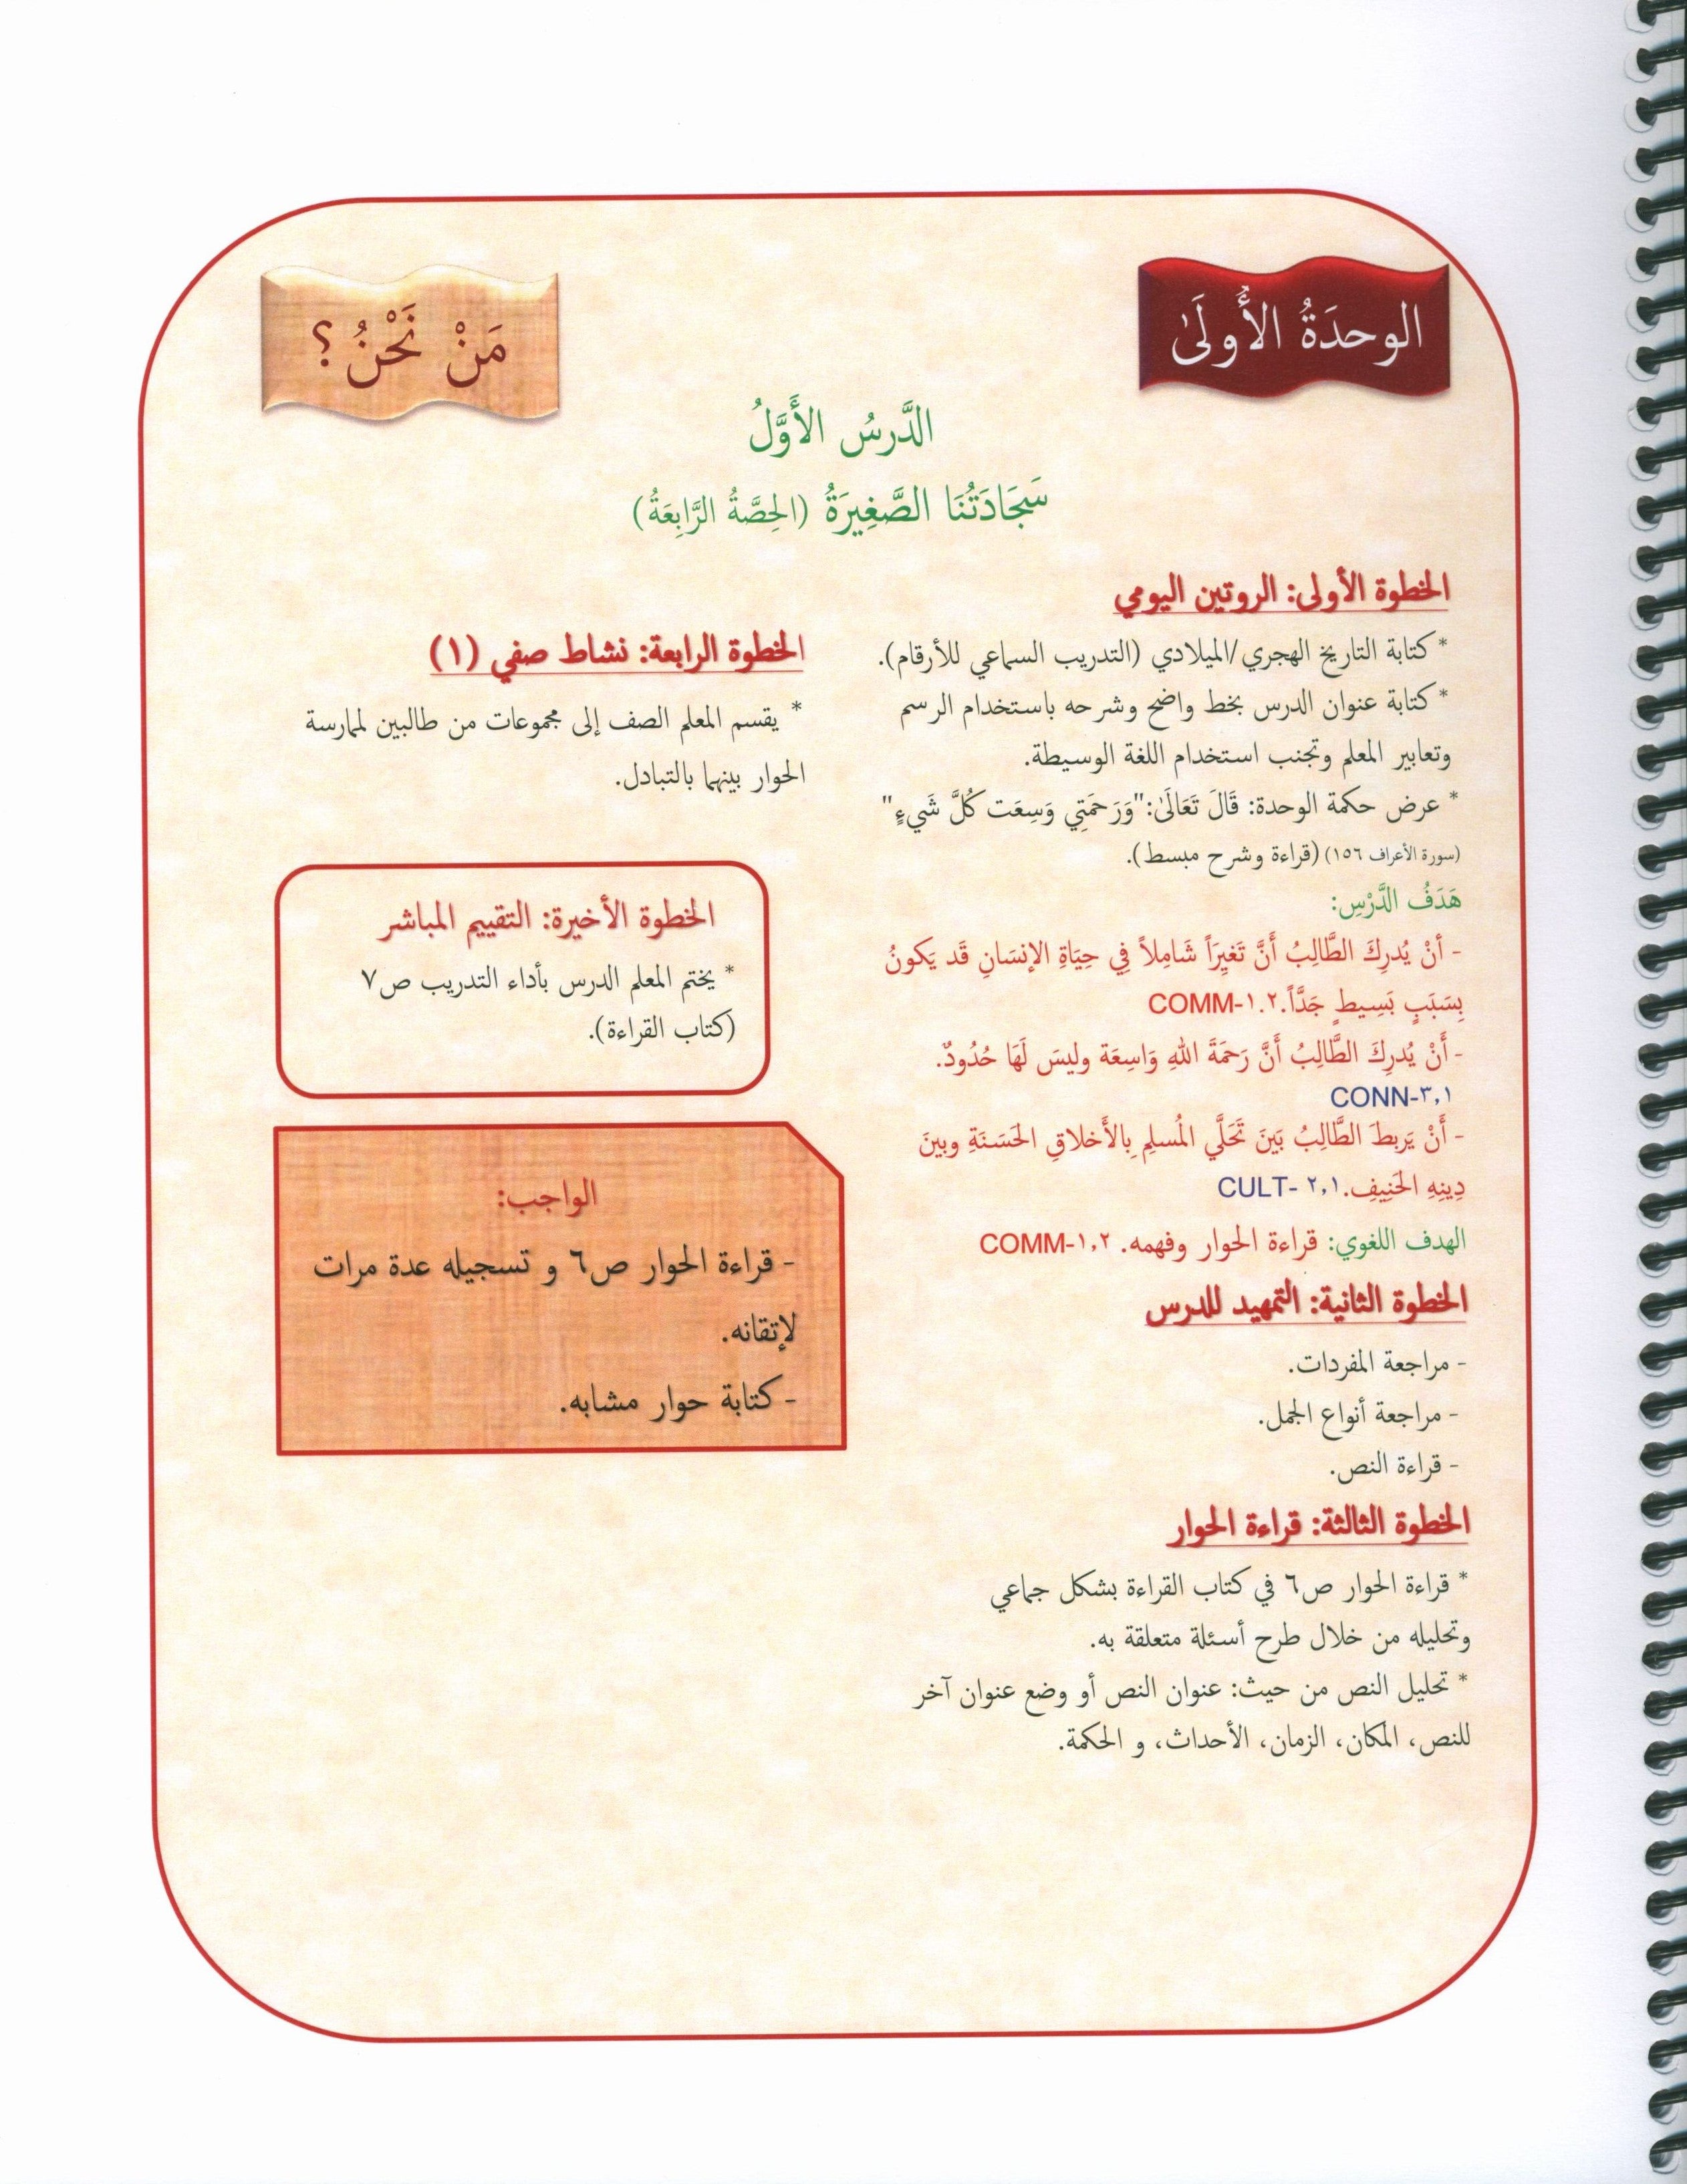 الوحدَةُ الأُولَىٰ
مَنْ نَحْنُ؟
الدَّرسُ الأَوَّلُ
سَجَادَتُنَا الصَّغِيرَةُ (الحِصَّةُ الرَّابِعَةُ)
الخطوة الأولى: الروتين اليومي
* كتابة التاريخ الهجري/الميلادي (التدريب السماعي للأرقام).
* كتابة عنوان الدرس بخط واضح وشرحه باستخدام الرسم
وتعابير المعلم وتجنب استخدام اللغة الوسيطة.
* عرض حكمة الوحدة: قَالَ تَعَالَىٰ:"وَرَحمَتِي وَسِعَت كُلَّ شَيءٍ"
(سورة الأعراف ١٥٦) (قراءة وشرح مبسط).
هَدَفُ الدَّرْسِ:
- أنْ يُدرِكَ الطَّالِبُ أَنَّ تَغيِرَاً شَامِلاً فِي حِيَاةِ الإنسَانِ قَد يَكونُ
بِسَبَبٍ بَسِيطٍ جَدَّاً.COMM-١.٢
- أَنْ يُدرِكَ الطَّالِبُ أَنَّ رَحمَةَ اللهِ وَاسِعَة وليسَ لَهَا حُدُودٌ.
CONN-٣,١
- أَنْ يَربطَ الطَّالِبُ بَينَ تَحَلَّي المُسلِمِ بِالأَخلاقِ الحَسَنَةِ وبينَ
دِينِهِ الحَنِيفِ.CULT- ٢,١
الهدف اللغوي: قراءة الحوار وفهمه. COMM-١,٢
الخطوة الثانية: التمهيد للدرس
- مراجعة المفردات.
- مراجعة أنواع الجمل.
- قراءة النص.
الخطوة الثالثة: قراءة الحوار
* قراءة الحوار ص٦ في كتاب القراءة بشكل جماعي
وتحليله من خلال طرح أسئلة متعلقة به.
* تحليل النص من حيث: عنوان النص أو وضع عنوان آخر
للنص، المكان، الزمان، الأحداث، و الحكمة.
الخطوة الرابعة: نشاط صفي (١)
* يقسم المعلم الصف إلى مجموعات من طالبين لممارسة
الحوار بينهما بالتبادل.
الخطوة الأخيرة: التقييم المباشر
* يختم المعلم الدرس بأداء التدريب ص٧
(كتاب القراءة).
الواجب:
- قراءة الحوار ص٦ و تسجيله عدة مرات
لإتقانه.
- كتابة حوار مشابه.